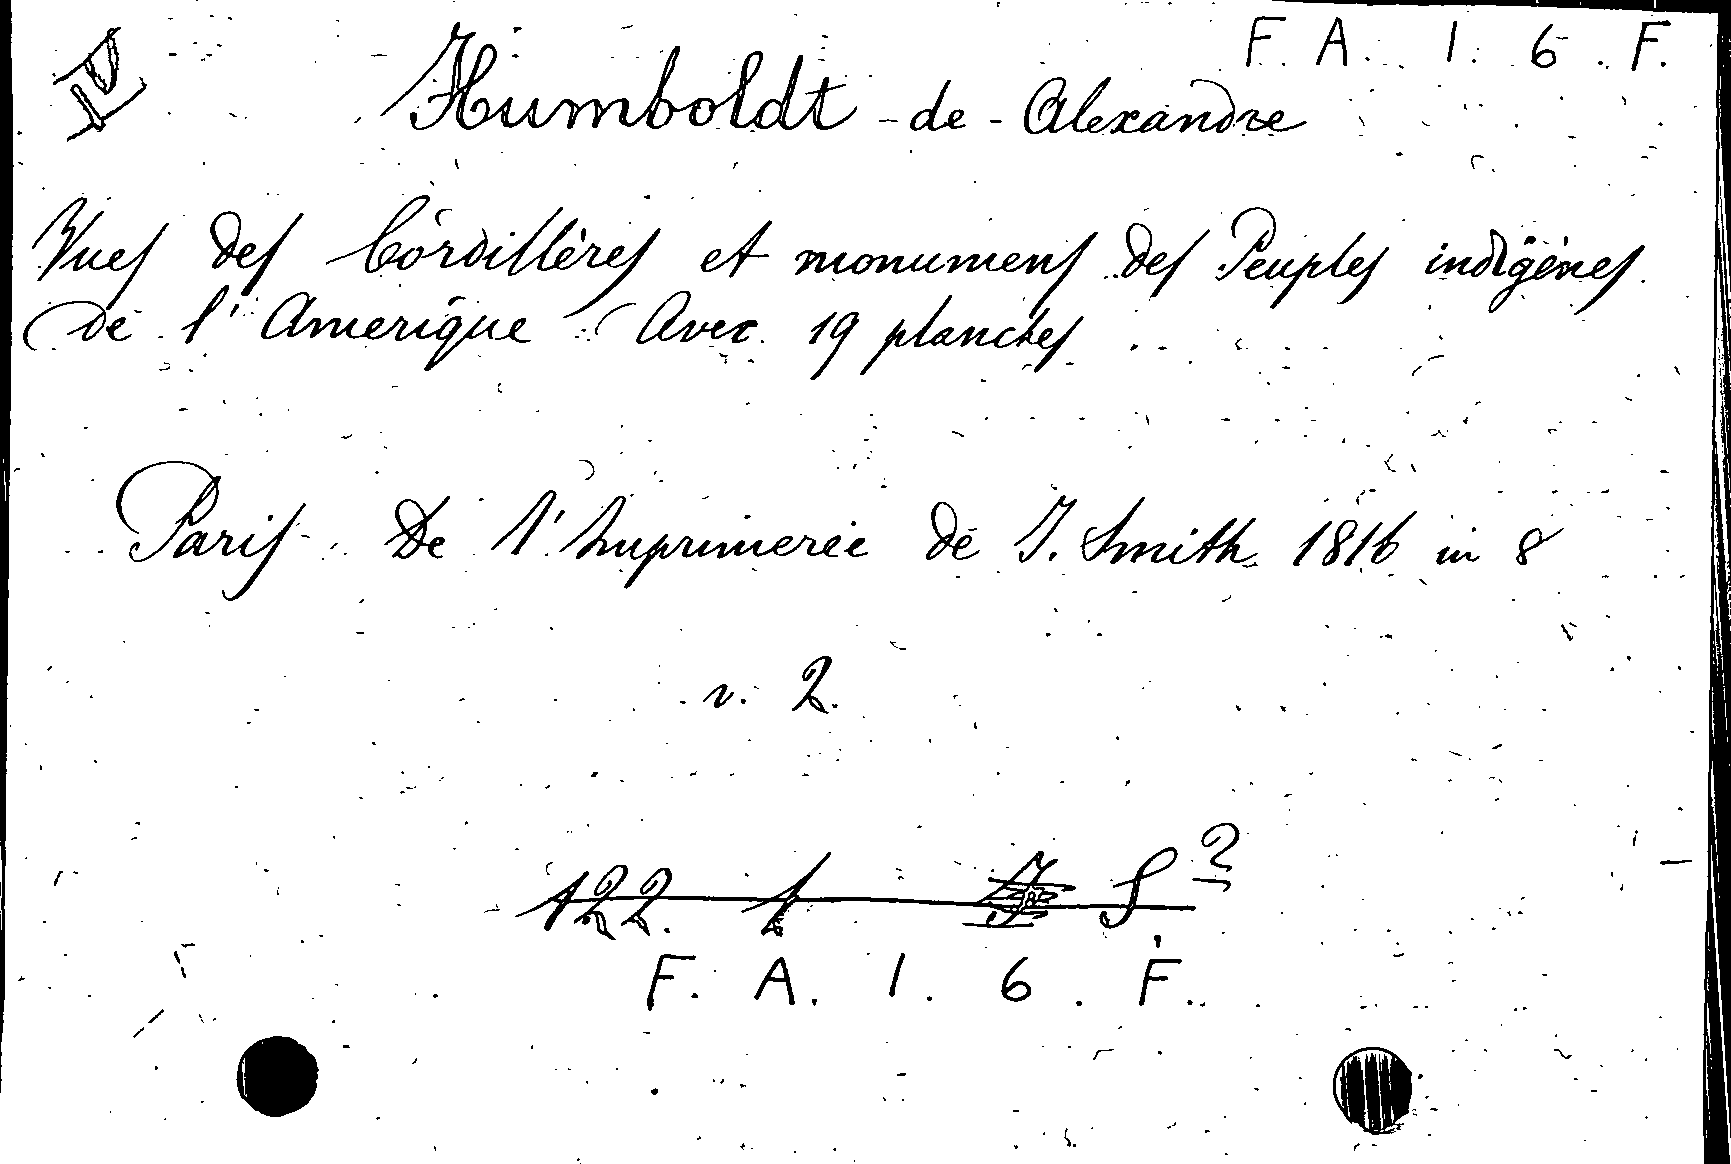 F. A. 1. 6. F.
IV
Humboldt - de - Alexandre
Vues des Cordillères et monumens des Peuples indigènes
de l'Amerique Avec 19 planches
Paris De l'Imprimerie de J. Smith 1816 in 8
v. 2.
122. S 2
F. A. 1. 6. F.